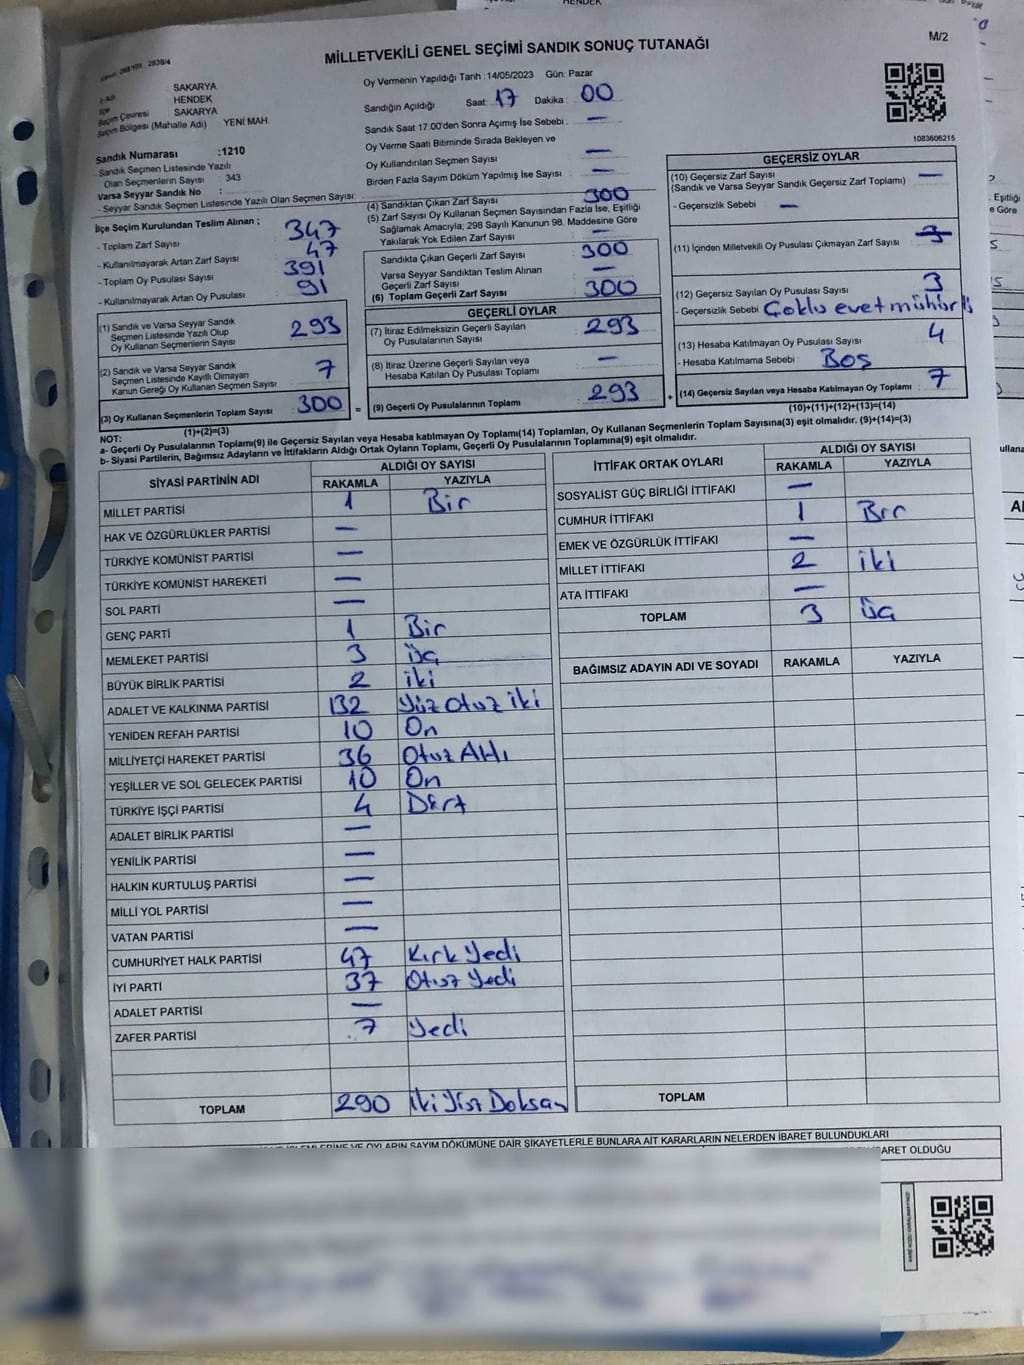 HENDEK
MİLLETVEKİLİ GENEL SEÇİMİ SANDIK SONUÇ TUTANAĞI
M/2
SAKARYA
HENDEK
Seçim Çevresi SAKARYA
Seçim Bölgesi (Mahalle Adı) YENİ MAH.
Sandık Numarası :1210
Sandık Seçmen Listesinde Yazılı
Olan Seçmenlerin Sayısı : 343
Varsa Seyyar Sandık No :
- Seyyar Sandık Seçmen Listesinde Yazılı Olan Seçmen Sayısı:
İlçe Seçim Kurulundan Teslim Alınan ;
- Toplam Zarf Sayısı 347
- Kullanılmayarak Artan Zarf Sayısı 47
- Toplam Oy Pusulası Sayısı 391
- Kullanılmayarak Artan Oy Pusulası 91
(1) Sandık ve Varsa Seyyar Sandık
Seçmen Listesinde Yazılı Olup
Oy Kullanan Seçmenlerin Sayısı : 293
(2) Sandık ve Varsa Seyyar Sandık
Seçmen Listesinde Kayıtlı Olmayan
Kanun Gereği Oy Kullanan Seçmen Sayısı : 7
(3) Oy Kullanan Seçmenlerin Toplam Sayısı : 300 =
(1)+(2)=(3)
Oy Vermenin Yapıldığı Tarih :14/05/2023 Gün: Pazar
Sandığın Açıldığı Saat: 17 Dakika : 00
Sandık Saat 17:00'den Sonra Açımış İse Sebebi : —
Oy Verme Saati Bitiminde Sırada Bekleyen ve
Oy Kullandırılan Seçmen Sayısı : —
Birden Fazla Sayım Döküm Yapılmış İse Sayısı : —
(4) Sandıktan Çıkan Zarf Sayısı : 300
(5) Zarf Sayısı Oy Kullanan Seçmen Sayısından Fazla İse, Eşitliği
Sağlamak Amacıyla; 298 Sayılı Kanunun 98. Maddesine Göre
Yakılarak Yok Edilen Zarf Sayısı : —
Sandıkta Çıkan Geçerli Zarf Sayısı : 300
Varsa Seyyar Sandıktan Teslim Alınan
Geçerli Zarf Sayısı : —
(6) Toplam Geçerli Zarf Sayısı : 300
GEÇERLİ OYLAR
(7) İtiraz Edilmeksizin Geçerli Sayılan
Oy Pusulasının Sayısı : 293
(8) İtiraz Üzerine Geçerli Sayılan veya
Hesaba Katılan Oy Pusulası Toplamı : —
(9) Geçerli Oy Pusulalarının Toplamı : 293 +
1083606215
GEÇERSİZ OYLAR
(10) Geçersiz Zarf Sayısı : —
(Sandık ve Varsa Seyyar Sandık Geçersiz Zarf Toplamı)
- Geçersizlik Sebebi : —
(11) İçinden Milletvekili Oy Pusulası Çıkmayan Zarf Sayısı :
(12) Geçersiz Sayılan Oy Pusulası Sayısı : 3
- Geçersizlik Sebebi : Çoklu evet mühürlü
(13) Hesaba Katılmayan Oy Pusulası Sayısı : 4
- Hesaba Katılmama Sebebi : Boş
(14) Geçersiz Sayılan veya Hesaba Katılmayan Oy Toplamı : 7
(10)+(11)+(12)+(13)=(14)
NOT:
a- Geçerli Oy Pusulalarının Toplamı(9) ile Geçersiz Sayılan veya Hesaba katılmayan Oy Toplamı(14) Toplamları, Oy Kullanan Seçmenlerin Toplam Sayısına(3) eşit olmalıdır. (9)+(14)=(3)
b- Siyasi Partilerin, Bağımsız Adayların ve İttifakların Aldığı Ortak Oyların Toplamı, Geçerli Oy Pusulalarının Toplamına(9) eşit olmalıdır.
SİYASİ PARTİNİN ADI ALDIĞI OY SAYISI
RAKAMLA YAZIYLA
MİLLET PARTİSİ 1 Bir
HAK VE ÖZGÜRLÜKLER PARTİSİ —
TÜRKİYE KOMÜNİST PARTİSİ —
TÜRKİYE KOMÜNİST HAREKETİ —
SOL PARTİ —
GENÇ PARTİ 1 Bir
MEMLEKET PARTİSİ 3 Üç
BÜYÜK BİRLİK PARTİSİ 2 iki
ADALET VE KALKINMA PARTİSİ 132 Yüz Otuz iki
YENİDEN REFAH PARTİSİ 10 On
MİLLİYETÇİ HAREKET PARTİSİ 36 Otuz Altı
YEŞİLLER VE SOL GELECEK PARTİSİ 10 On
TÜRKİYE İŞÇİ PARTİSİ 4 Dört
ADALET BİRLİK PARTİSİ —
YENİLİK PARTİSİ —
HALKIN KURTULUŞ PARTİSİ —
MİLLİ YOL PARTİSİ —
VATAN PARTİSİ —
CUMHURİYET HALK PARTİSİ 47 Kırk Yedi
İYİ PARTİ 37 Otuz Yedi
ADALET PARTİSİ —
ZAFER PARTİSİ 7 Yedi
TOPLAM 290 iki Yüz Doksan
İTTİFAK ORTAK OYLARI ALDIĞI OY SAYISI
RAKAMLA YAZIYLA
SOSYALİST GÜÇ BİRLİĞİ İTTİFAKI —
CUMHUR İTTİFAKI 1 Bir
EMEK VE ÖZGÜRLÜK İTTİFAKI —
MİLLET İTTİFAKI 2 iki
ATA İTTİFAKI —
TOPLAM 3 Üç
BAĞIMSIZ ADAYIN ADI VE SOYADI RAKAMLA YAZIYLA
TOPLAM
OYLARIN SAYIM DÖKÜMÜNE DAİR ŞİKAYETLERLE BUNLARA AİT KARARLARIN NELERDEN İBARET BULUNDUKLARI
OLDUĞU